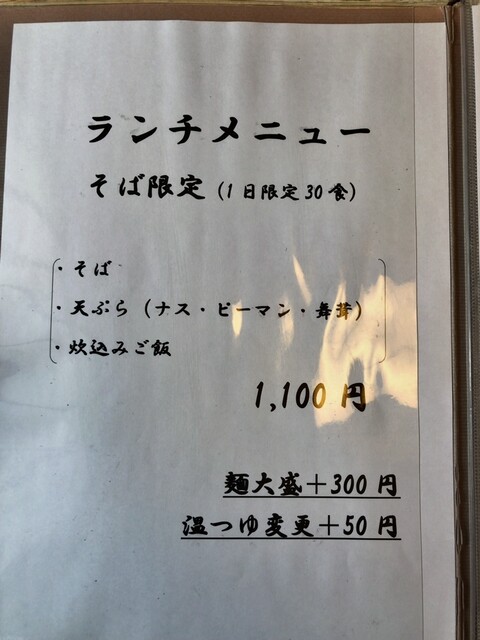 ランチメニュー
そば限定(1日限定30食)
・そば
・天ぷら(ナス・ピーマン・舞茸)
・炊込みご飯
1,100円
麺大盛+300円
温つゆ変更+50円